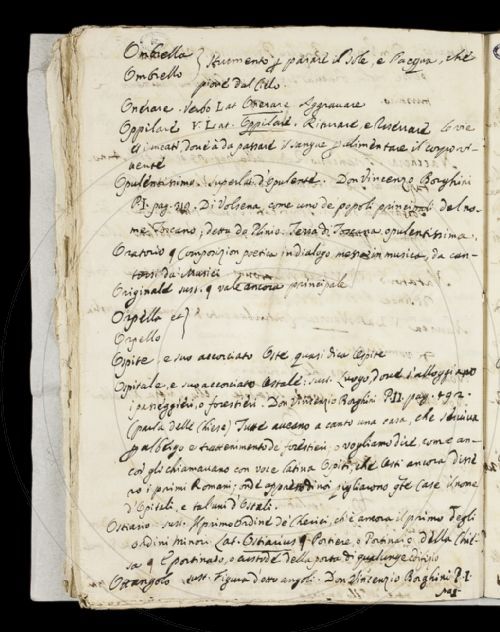 Ombrella } strumento p parare il Sole, e l'acqua, che
Ombrello piove dal Cielo.
Onerare. Verbo Lat. Onerare. Aggravare
Oppilare V. Lat. Oppilare. Riturare, e riserrare le vie
e i meati dond'à da passare il sangue p alimentare il corpo vi-
vente
Opulentissimo. superlat. d'Opulente. Don Vincenzo Borghini
P.I. pag. Di Volsena, come uno de popoli principali del no-
me Toscano, detta da Plinio. Terra di Toscana opulentissima.
Oratorio q Composizion poetica in dialogo messa in musica, da can-
tarsi da Musici
Originale sust. q vale ancora principale
Orpella et }
Orpello
Ospite, e suo accorciato Oste quasi dica Ospite
Ospitale, e suo accorciato Ostale: sust. Luogo, dove s'alloggiano
i passeggieri, o forestieri. Don Vincenzio Borghini P.II. pag. 492.
(parla delle Chiese) Tutte aveano a canto una casa, che serviva
p albergo e trattenimento de forestieri, o vogliamo dire, come an-
cor gli chiamavano con voce latina Ospiti, che Osti ancora disse-
ro i primi Romani; onde appresso di noi pigliarono qte Case il nome
d'Spitali, e taluni d'Ostali.
Ostiario sust. Il primo Ordine de' Cherici, ch'è ancora il primo degli
ordini minori. Lat. Ostiarius q Portiere, o Portinaio della Chie-
sa q Portinaio, o custode della porta di qualunque edificio
Ottangolo sust. Figura d'otto angoli. Don Vincenzio Borghini P.I.
pag.